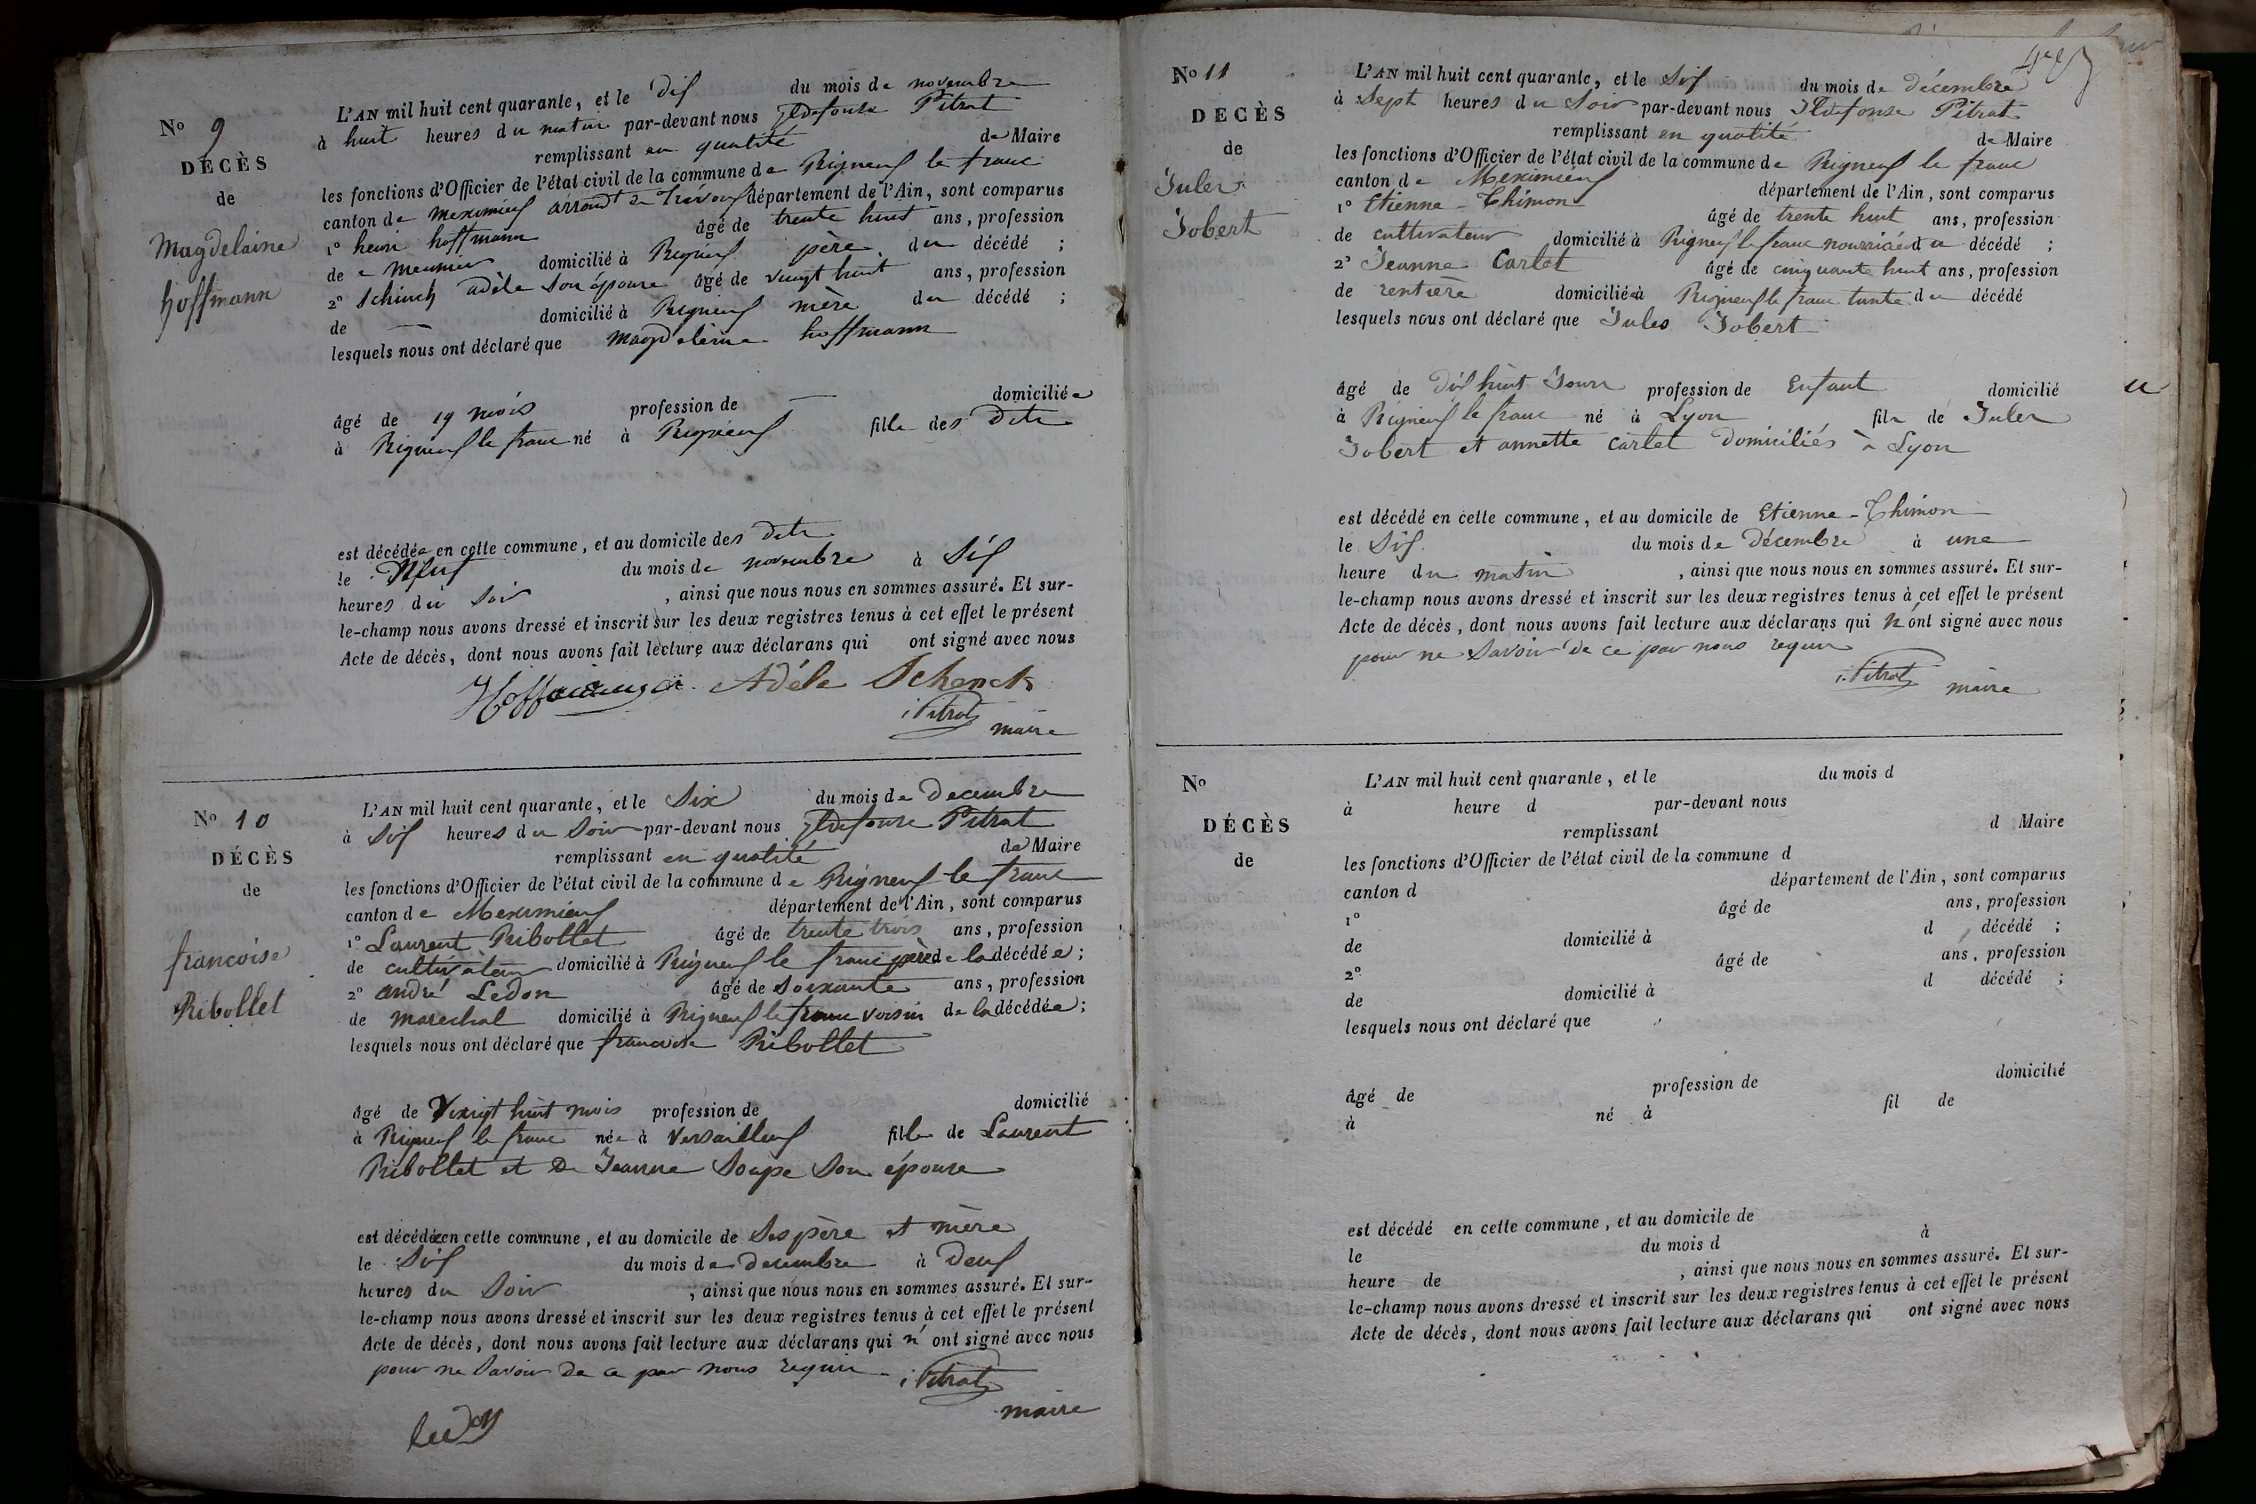 No 9
DÉCÈS
de
Magdelaine
hoffmann
L'AN mil huit cent quarante, et le dix du mois de novembre
à huit heures du matin par-devant nous Ildefonse Pitrat
remplissant en qualité de Maire
les fonctions d'Officier de l'état civil de la commune de Rigneux le franc
canton de Meximieux arrondt de Trévoux département de l'Ain, sont comparus
1o henri hoffmann âgé de trente huit ans, profession
de Meunier domicilié à Rignieux père du décédé ;
2o Schinck adèle son épouse âgé de vingt huit ans, profession
de — domicilié à Rignieux mère du décédé ;
lesquels nous ont déclaré que Magdeleine hoffmann
âgé de 19 mois profession de — domiciliée
à Rigneux le franc né à Rignieux fille des Dits
est décédée en cette commune, et au domicile des dits
le Neuf du mois de novembre à Six
heures du Soir , ainsi que nous nous en sommes assuré. Et sur-
le-champ nous avons dressé et inscrit sur les deux registres tenus à cet effet le présent
Acte de décès, dont nous avons fait lecture aux déclarans qui ont signé avec nous
Adéle Schenck
Pitrat
maire
No 10
DÉCÈS
de
francoise
Ribollet
L'AN mil huit cent quarante, et le Six du mois de Decembre
à Six heures du Soir par-devant nous Ildefonse Pitrat
remplissant en qualité de Maire
les fonctions d'Officier de l'état civil de la commune de Rigneux le franc
canton de Meximieux département de l'Ain, sont comparus
1o Laurent Ribollet âgé de trente trois ans, profession
de cultivateur domicilié à Rigneux le franc père de la décédée ;
2o andré Ledon âgé de soixante ans, profession
de marechal domicilié à Rigneux le franc voisin de la décédée ;
lesquels nous ont déclaré que francoise Ribollet
âgé de Vixigt huit mois profession de domicilié
à Rigneux le franc née à Versailleux fille de Laurent
Ribollet et De Jeanne Soupe Son épouse
est décédée en cette commune, et au domicile de Ses père et mère
le Six du mois de decembre à Deux
heures du Soir , ainsi que nous nous en sommes assuré. Et sur-
le-champ nous avons dressé et inscrit sur les deux registres tenus à cet effet le présent
Acte de décès, dont nous avons fait lecture aux déclarans qui n'ont signé avec nous
pour ne Savoir de ce par nous requis Pitrat
maire
ledon
No 11
DECÈS
de
Jules
Jobert
L'AN mil huit cent quarante, et le Six du mois de décembre
à Sept heures du Soir par-devant nous Ildefonse Pitrat
remplissant en qualité de Maire
les fonctions d'Officier de l'état civil de la commune de Rigneux le franc
canton de Meximieux département de l'Ain, sont comparus
1o Etienne Thimon âgé de trente huit ans, profession
de cultivateur domicilié à Rigneux le franc nourricier du décédé ;
2o Jeanne Carlet âgé de cinquante huit ans, profession
de rentière domiciliée à Rigneux le franc tante du décédé
lesquels nous ont déclaré que Jules Jobert
âgé de dix huit Jours profession de Enfant domicilié
à Rigneux le franc né à Lyon fils de Jules
Jobert et annette Carlet domiciliés à Lyon
est décédé en cette commune, et au domicile de Etienne Thimon
le Six du mois de Décembre à une
heure du matin , ainsi que nous nous en sommes assuré. Et sur-
le-champ nous avons dressé et inscrit sur les deux registres tenus à cet effet le présent
Acte de décès, dont nous avons fait lecture aux déclarans qui n'ont signé avec nous
pour ne Savoir de ce par nous requis
Pitrat maire
No
DÉCÈS
de
L'AN mil huit cent quarante, et le du mois d
à heure d par-devant nous
remplissant d Maire
les fonctions d'Officier de l'état civil de la commune d
canton d département de l'Ain, sont comparus
1o âgé de ans, profession
de domicilié à d décédé ;
2o âgé de ans, profession
de domicilié à d décédé ;
lesquels nous ont déclaré que
âgé de profession de domicilié
à né à fil de
est décédé en cette commune, et au domicile de
le du mois d à
heure de , ainsi que nous nous en sommes assuré. Et sur-
le-champ nous avons dressé et inscrit sur les deux registres tenus à cet effet le présent
Acte de décès, dont nous avons fait lecture aux déclarans qui ont signé avec nous